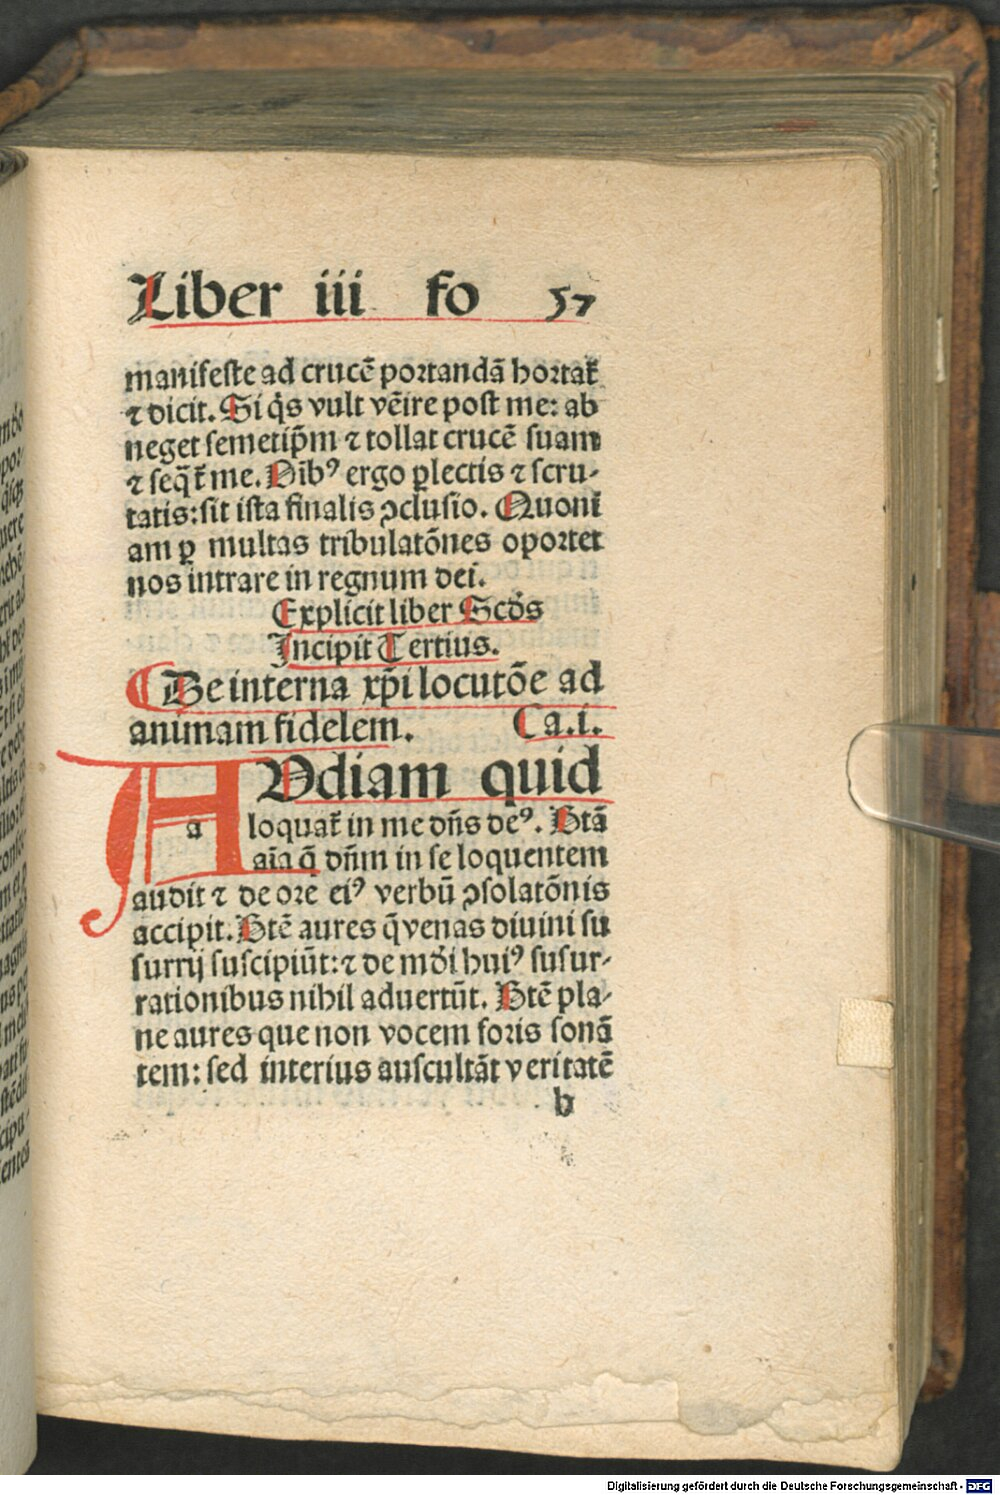 Liber iii fo 57
manifeste ad crucē portandā hortat᷑
⁊ dicit. Si q̇s vult vēire post me: ab
neget semetip̄m ⁊ tollat crucē suam
⁊ seq̄t᷑ me. Oīb⁹ ergo ꝑlectis ⁊ scru-
tatis: sit ista finalis ↄclusio. Quoni
am ꝑ multas tribulatōnes oportet
nos intrare in regnum dei.
Explicit liber Scd̓s
Incipit Tertius.
¶ De interna xp̄i locutōe ad
animam fidelem. Ca. i.
AUdiam quid
a loquat᷑ in me dn̄s de⁹. Btā
aīa q̄ dn̄m in se loquentem
audit ⁊ de ore ei⁹ verbū ↄsolatōnis
accipit. Btē aures q̄ venas diuini su
surrij suscipiūt: ⁊ de mūdi hui⁹ susur-
rationibus nihil aduertūt. Btē pla-
ne aures que non vocem foris sonā
tem: sed interius auscultāt veritatē
h
Digitalisierung gefördert durch die Deutsche Forschungsgemeinschaft - DFG